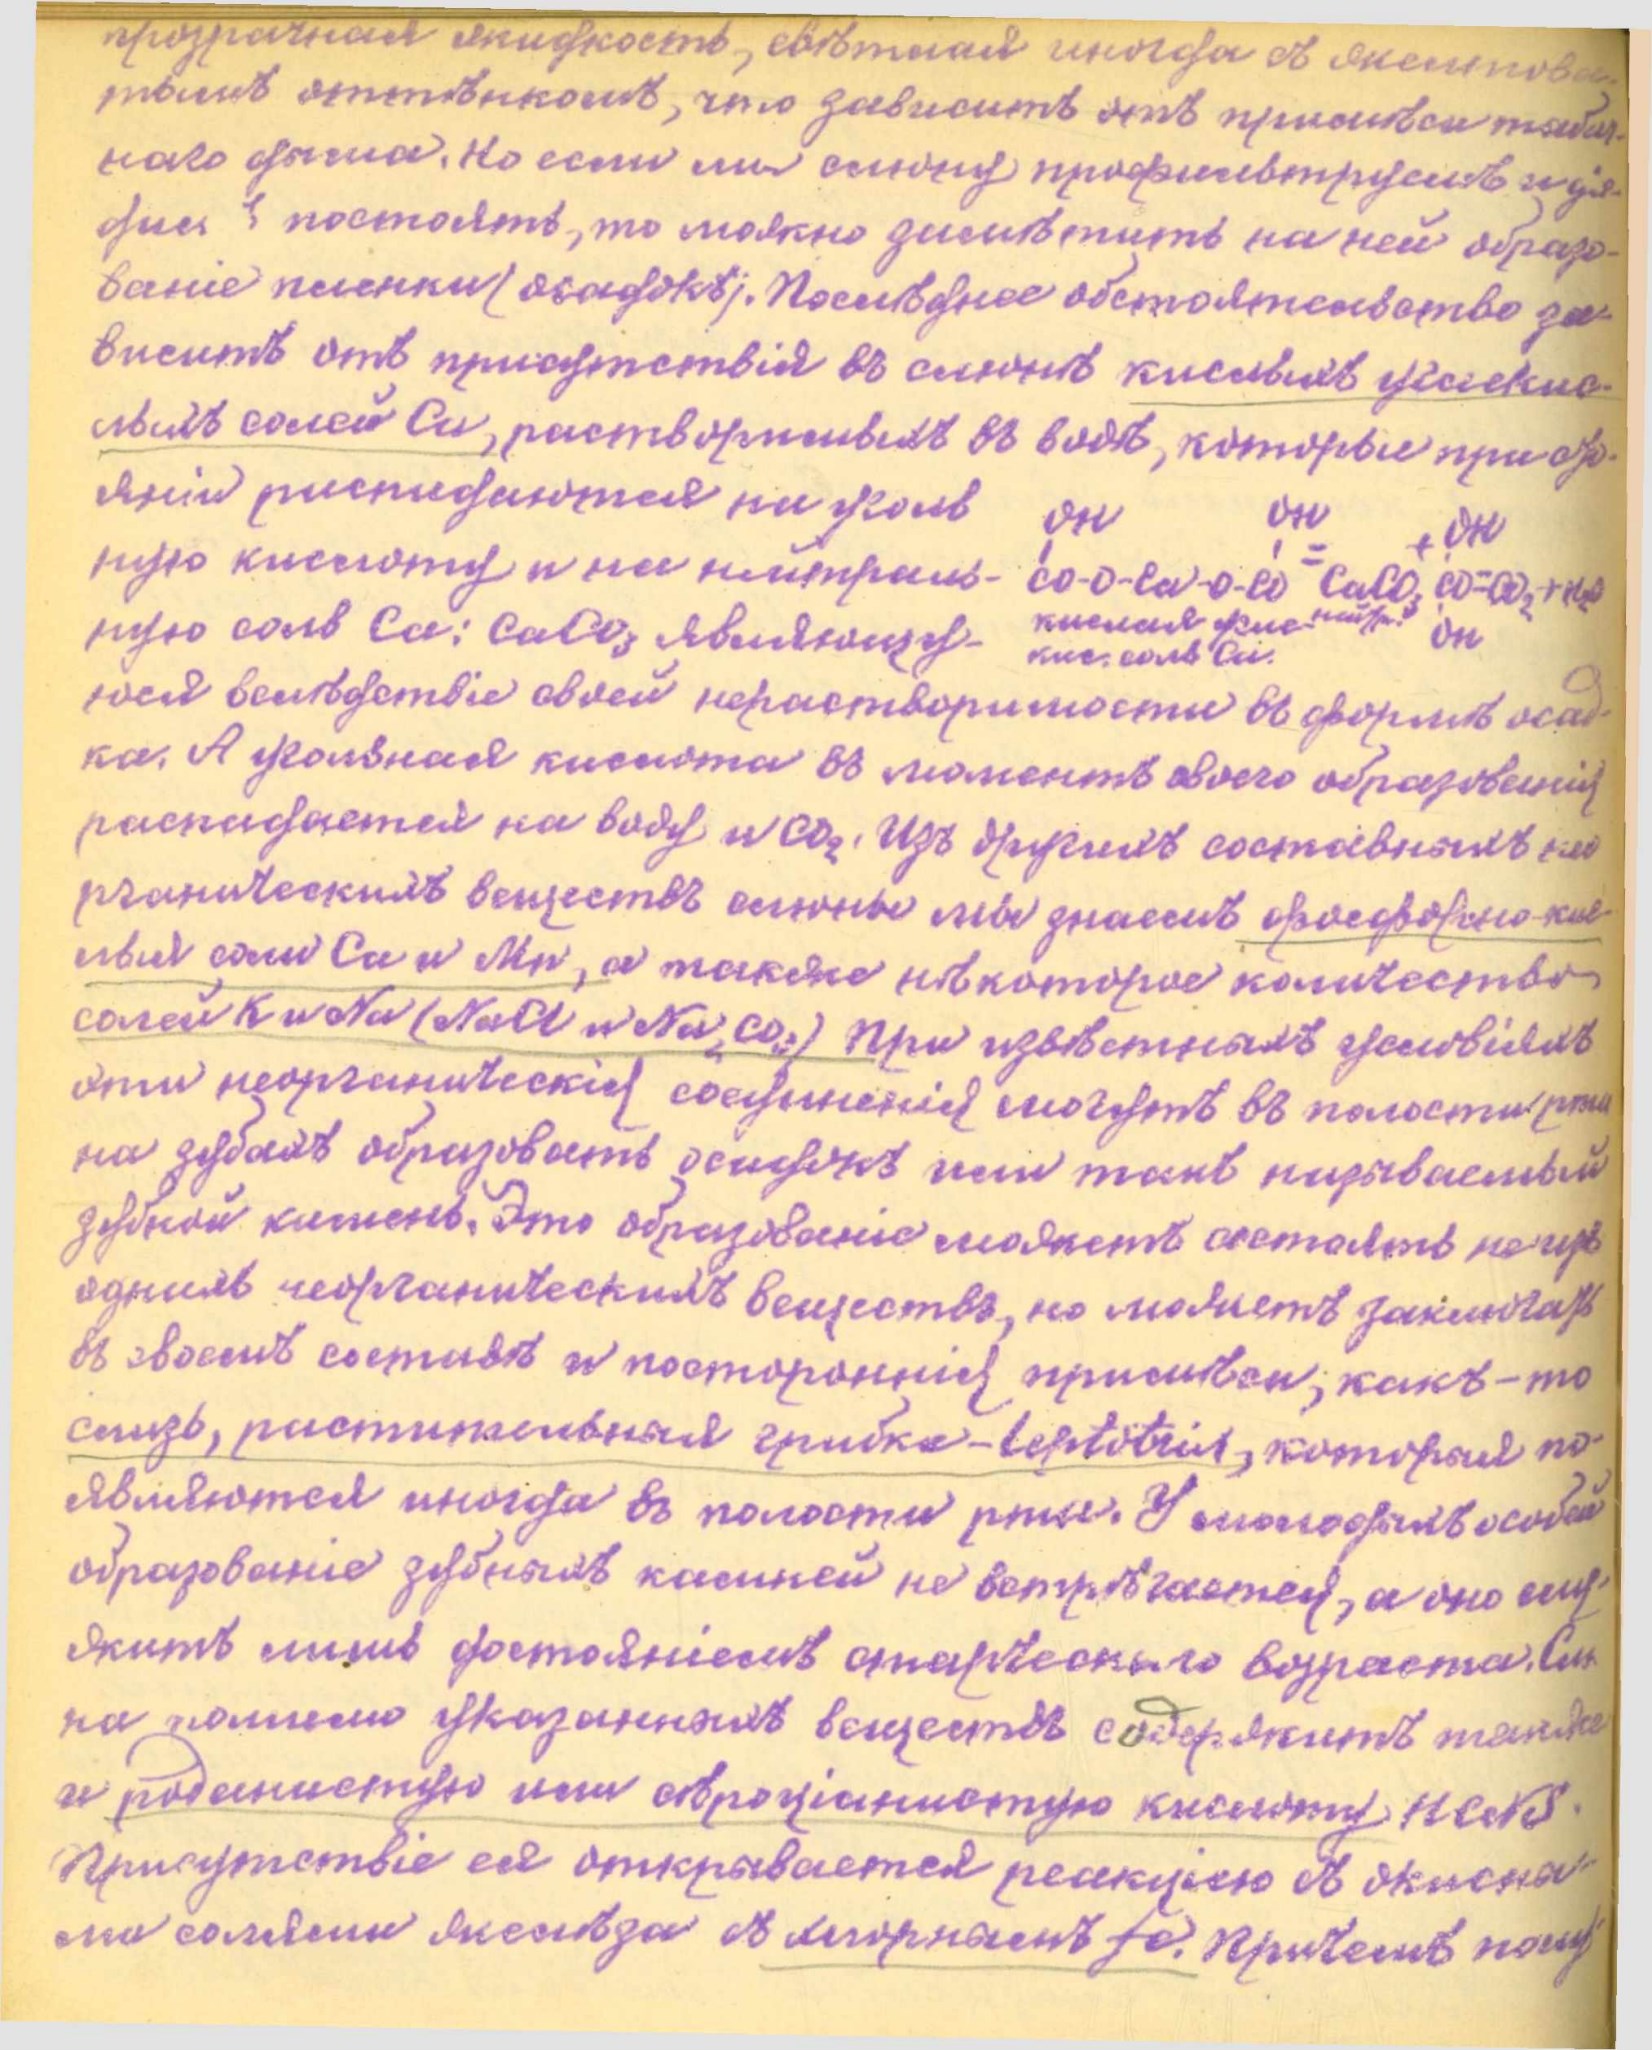 прозрачная жидкость, свѣтлая иногда съ желтова-
тымъ оттѣнкомъ, что зависитъ отъ примѣси табач-
наго дыма. Но если мы слюну профильтруемъ и да-
дим ей постоять, то можно замѣтить на ней образо-
ваніе пленки (осадокъ). Послѣднее обстоятельство за-
виситъ отъ присутствія въ слюнѣ кислыхъ углекис-
лыхъ солей Ca, растворимыхъ въ водѣ, которые при сто-
яніи распадаются на уголь
ную кислоту и на нейтраль-
ную соль Ca: CaCO3 являющу-
OH OH + OH
CO-O-Ca-O-CO = CaCO3 CO=CO2+H2O
кислая угле- нейтр. OH
кис. соль Ca.
юся вслѣдствіе своей нерастворимости въ формѣ осад-
ка. А угольная кислота въ моментъ своего образованія
распадается на воду и CO2. Изъ другихъ составныхъ нео
рганическихъ веществъ слюны мы знаемъ фосфорно-кис-
лыя соли Ca и Mn, а также нѣкоторое количество
солей K и Na (NaCl и Na2CO3) При извѣстныхъ условіяхъ
эти неорганическія соединенія могутъ въ полости рта
на зубахъ образовать осадокъ или такъ называемый
зубной камень. Это образованіе можетъ состоять не изъ
однихъ неорганическихъ веществъ, но можетъ заключать
въ своемъ составѣ и постороннія примѣси, какъ-то
слизь, растительныя грибки - leptotrix, которыя по-
являются иногда въ полости рта. У молодыхъ особей
образованіе зубныхъ камней не встрѣчается, а оно слу-
житъ лишь достояніемъ старческаго возраста. Слю-
на помимо указанныхъ веществъ содержитъ также
и роданистую или сѣроціанистую кислоту HCNS.
Присутствіе ея открывается реакціею съ окисны-
ми солями желѣза съ хлорнымъ fe. Причемъ полу-